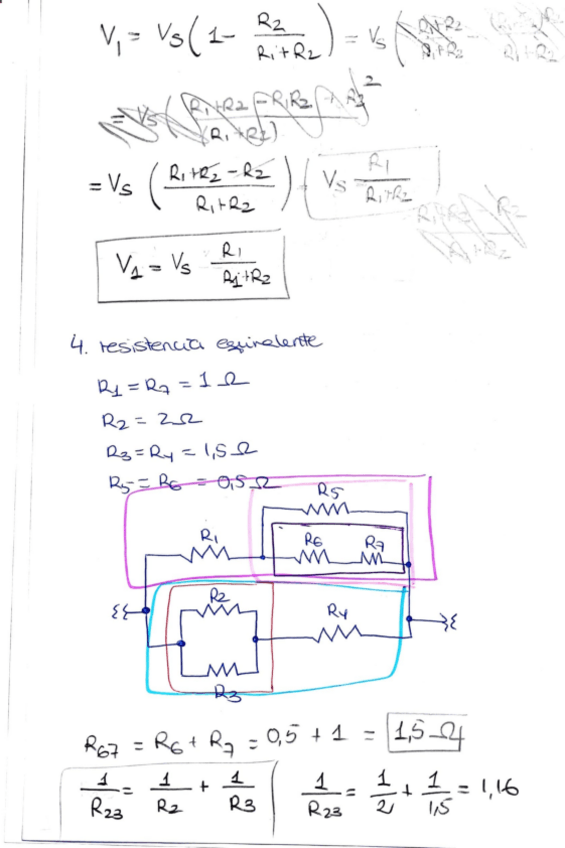 V₁ = Vs ( 1 - R₂ / (R₁ + R₂) ) = Vs
= Vs ( (R₁ + R₂ - R₂) / (R₁ + R₂) ) Vs R₁ / (R₁ + R₂)
V₁ = Vs R₁ / (R₁ + R₂)
4. resistencia equivalente
R₁ = R₇ = 1 Ω
R₂ = 2Ω
R₃ = R₄ = 1,5 Ω
R₅ = R₆ = 0,5 Ω
R₅
R₁
R₆
R₇
R₂
R₄
R₃
R₆₇ = R₆ + R₇ = 0,5 + 1 = 1,5 Ω
1/R₂₃ = 1/R₂ + 1/R₃ 1/R₂₃ = 1/2 + 1/1,5 = 1,16